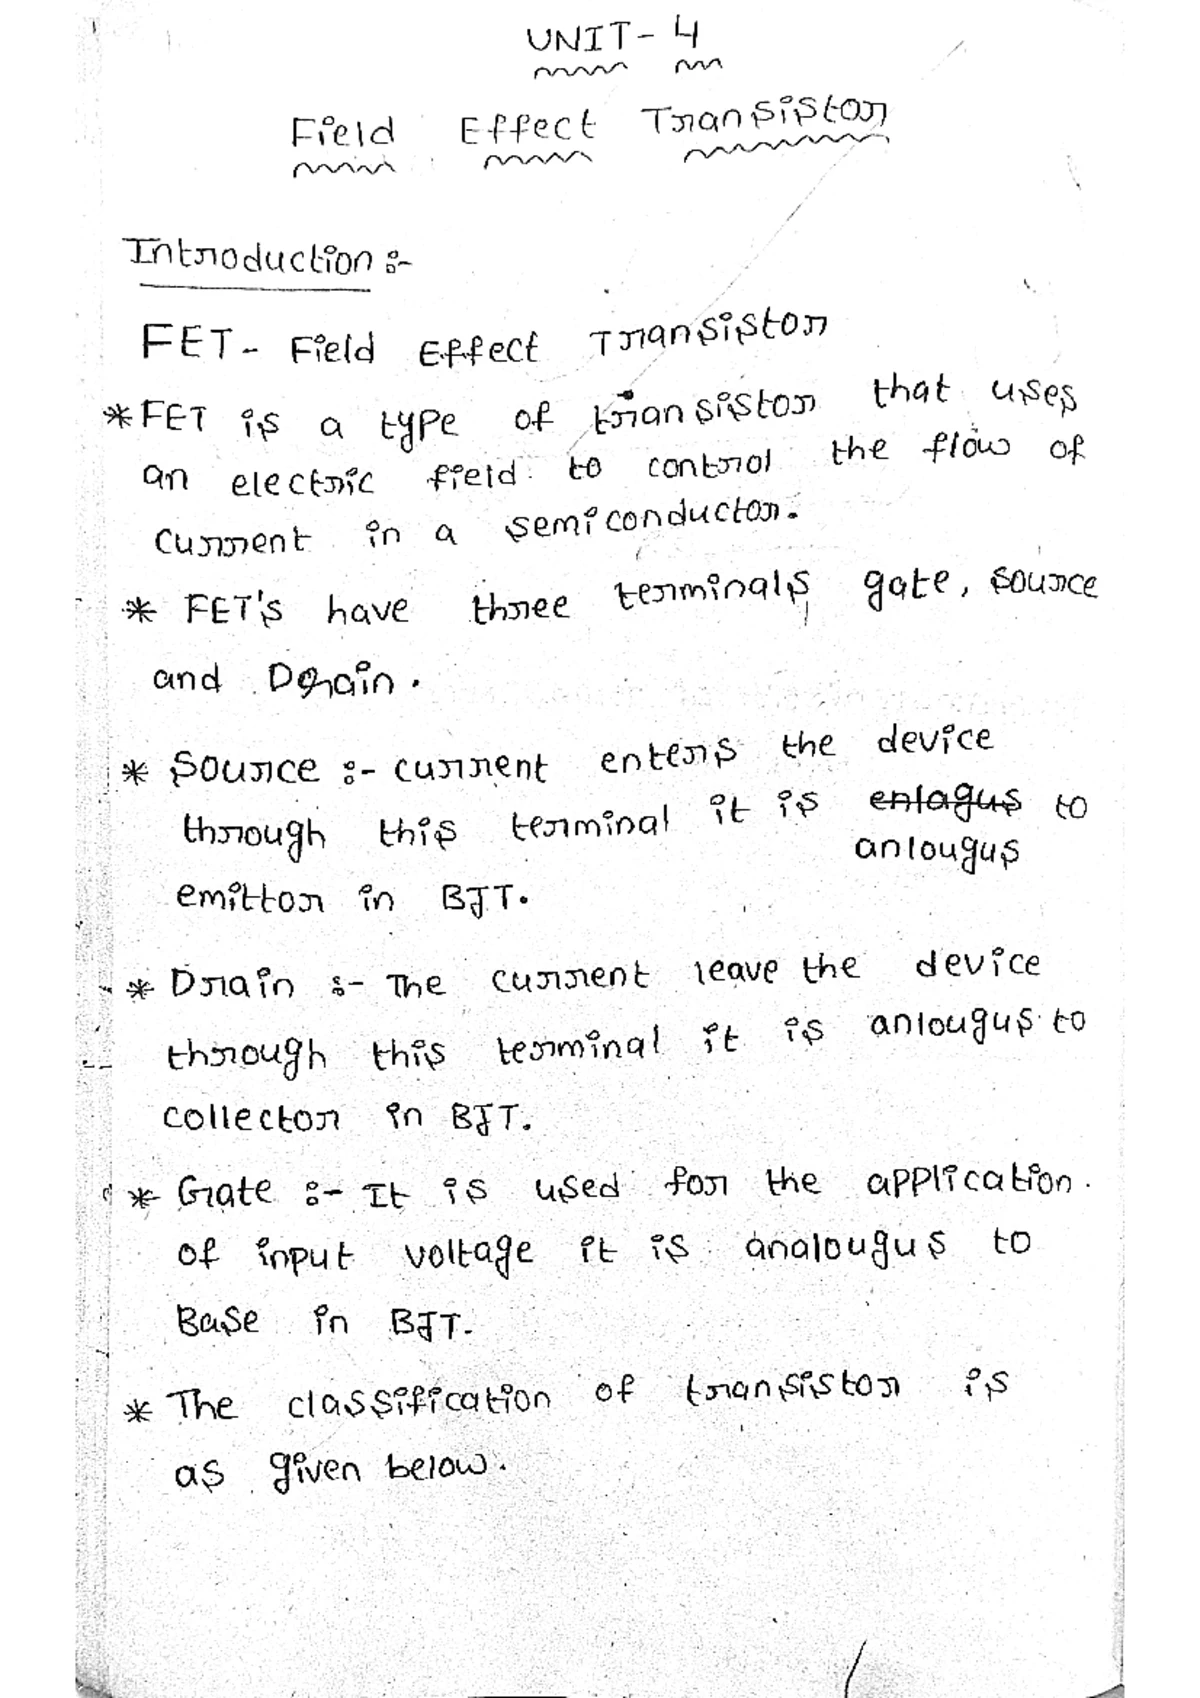 UNIT - 4
Field Effect Transistor
Introduction :-
FET - Field Effect Transistor
* FET is a type of transistor that uses
an electric field to control the flow of
current in a semiconductor.
* FET's have three terminals gate, source
and Drain.
* Source :- current enters the device
through this terminal it is enlagus to
anlougus
emittor in BJT.
* Drain :- The current leave the device
through this terminal it is anlougus to
collector in BJT.
* Gate :- It is used for the application.
of input voltage it is analougus to
Base in BJT.
* The classification of transistor is
as given below.